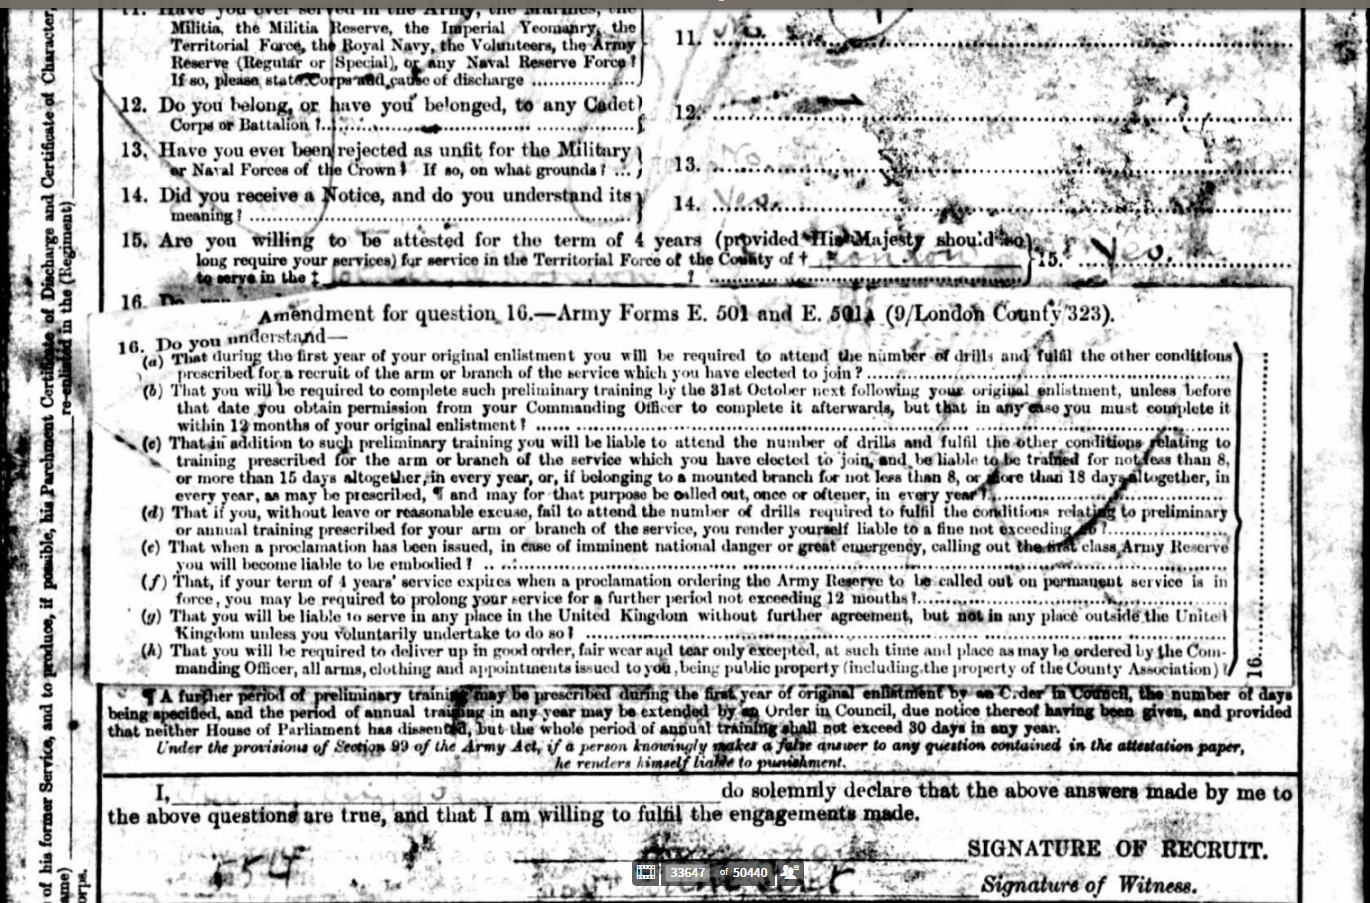 11. Have you ever served in the Army, the Marines, the
Militia, the Militia Reserve, the Imperial Yeomanry, the
Territorial Force, the Royal Navy, the Volunteers, the Army
Reserve (Regular or Special), or any Naval Reserve Force?
If so, please state Corps and cause of discharge
11.
12. Do you belong, or have you belonged, to any Cadet
Corps or Battalion?
12.
13. Have you ever been rejected as unfit for the Military
or Naval Forces of the Crown? If so, on what grounds?
13. No
14. Did you receive a Notice, and do you understand its
meaning?
14. Yes
15. Are you willing to be attested for the term of 4 years (provided His Majesty should so
long require your services) for service in the Territorial Force of the County of † London
to serve in the ‡ ?
15. Yes.
16. Do
Amendment for question 16.—Army Forms E. 501 and E. 501A (9/London County/323).
16. Do you understand—
(a) That during the first year of your original enlistment you will be required to attend the number of drills and fulfil the other conditions
prescribed for a recruit of the arm or branch of the service which you have elected to join?
(b) That you will be required to complete such preliminary training by the 31st October next following your original enlistment, unless before
that date you obtain permission from your Commanding Officer to complete it afterwards, but that in any case you must complete it
within 12 months of your original enlistment?
(c) That in addition to such preliminary training you will be liable to attend the number of drills and fulfil the other conditions relating to
training prescribed for the arm or branch of the service which you have elected to join, and be liable to be trained for not less than 8,
or more than 15 days altogether, in every year, or, if belonging to a mounted branch for not less than 8, or more than 18 days altogether, in
every year, as may be prescribed, ¶ and may for that purpose be called out, once or oftener, in every year?
(d) That if you, without leave or reasonable excuse, fail to attend the number of drills required to fulfil the conditions relating to preliminary
or annual training prescribed for your arm or branch of the service, you render yourself liable to a fine not exceeding
(e) That when a proclamation has been issued, in case of imminent national danger or great emergency, calling out the first class Army Reserve
you will become liable to be embodied?
(f) That, if your term of 4 years' service expires when a proclamation ordering the Army Reserve to be called out on permanent service is in
force, you may be required to prolong your service for a further period not exceeding 12 months?
(g) That you will be liable to serve in any place in the United Kingdom without further agreement, but not in any place outside the United
Kingdom unless you voluntarily undertake to do so?
(h) That you will be required to deliver up in good order, fair wear and tear only excepted, at such time and place as may be ordered by the Com-
manding Officer, all arms, clothing and appointments issued to you, being public property (including the property of the County Association)?
16
¶ A further period of preliminary training may be prescribed during the first year of original enlistment by an Order in Council, the number of days
being specified, and the period of annual training in any year may be extended by an Order in Council, due notice thereof having been given, and provided
that neither House of Parliament has dissented, but the whole period of annual training shall not exceed 30 days in any year.
Under the provisions of Section 99 of the Army Act, if a person knowingly makes a false answer to any question contained in the attestation paper,
he renders himself liable to punishment.
I, do solemnly declare that the above answers made by me to
the above questions are true, and that I am willing to fulfil the engagements made.
SIGNATURE OF RECRUIT.
Signature of Witness.
33647 of 50440
of his former Service, and to produce, if possible, his Parchment Certificate of Discharge and Certificate of Character,
name) re-enlisted in the (Regiment)
orps.